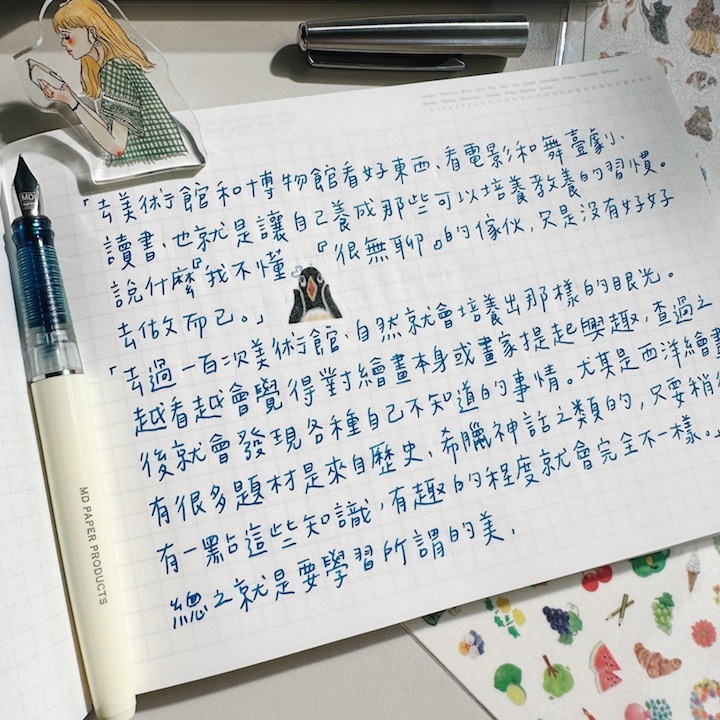 「去美術館和博物館看好東西、看電影和舞臺劇、
讀書、也就是讓自己養成那些可以培養教養的習慣。
說什麼『我不懂』、『很無聊』的傢伙,只是沒有好好
去做而已。」
「去過一百次美術館、自然就會培養出那樣的眼光。
越看越會覺得對繪畫本身或畫家提起興趣,查過之
後就會發現各種自己不知道的事情。尤其是西洋繪畫
有很多題材是來自歷史、希臘神話之類的,只要稍微
有一點這些知識,有趣的程度就會完全不一樣。」
總之就是要學習所謂的美,
MD PAPER PRODUCTS
MD